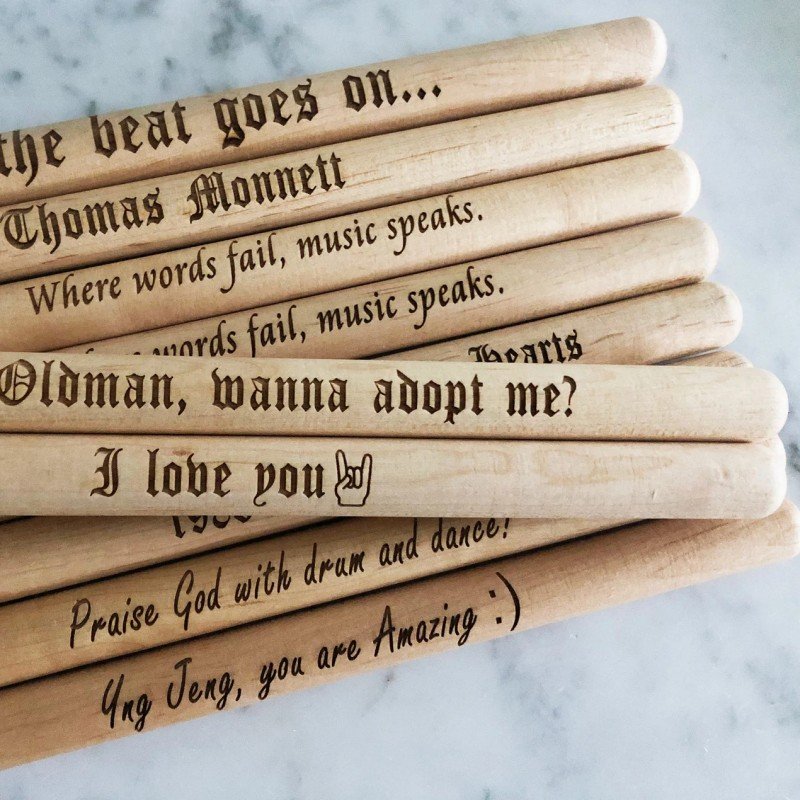 the beat goes on...
Thomas Monnett
Where words fail, music speaks.
words fail, music speaks.
Hearts
Oldman, wanna adopt me?
I love you🤘
Praise God with drum and dance!
Yng Jeng, you are Amazing :)